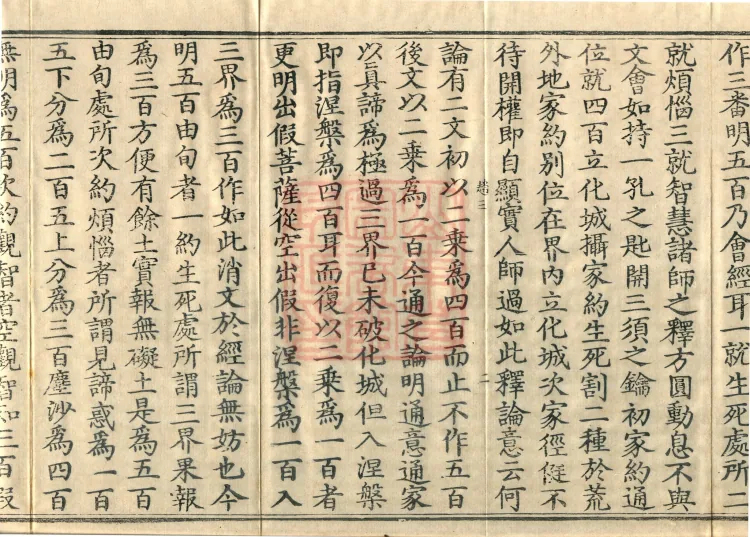 作三番明五百乃會經耳一就生死處所二
就煩惱三就智慧諸師之釋方圓動息不與
文會如持一孔之匙開三須之鑰初家約通
位就四百立化城攝家約生死割二種於荒
外地家約別位在界內立化城次家徑侹不
待開權即自顯實人師過如此釋論意云何
論有二文初以二乘為四百而止不作五百
後文以二乘為一百今通之論明通意通家
以真諦為極過三界已未破化城但入涅槃
即指涅槃為四百耳而復以二乘為一百者
更明出假菩薩從空出假非涅槃為一百入
三界為三百作如此消文於經論無妨也今
明五百由旬者一約生死處所謂三界果報
為三百方便有餘土實報無礙土是為五百
由旬處所次約煩惱者所謂見諦惑為一百
五下分為二百五上分為三百塵沙為四百
無明為五百次約觀智者空觀智知三百假